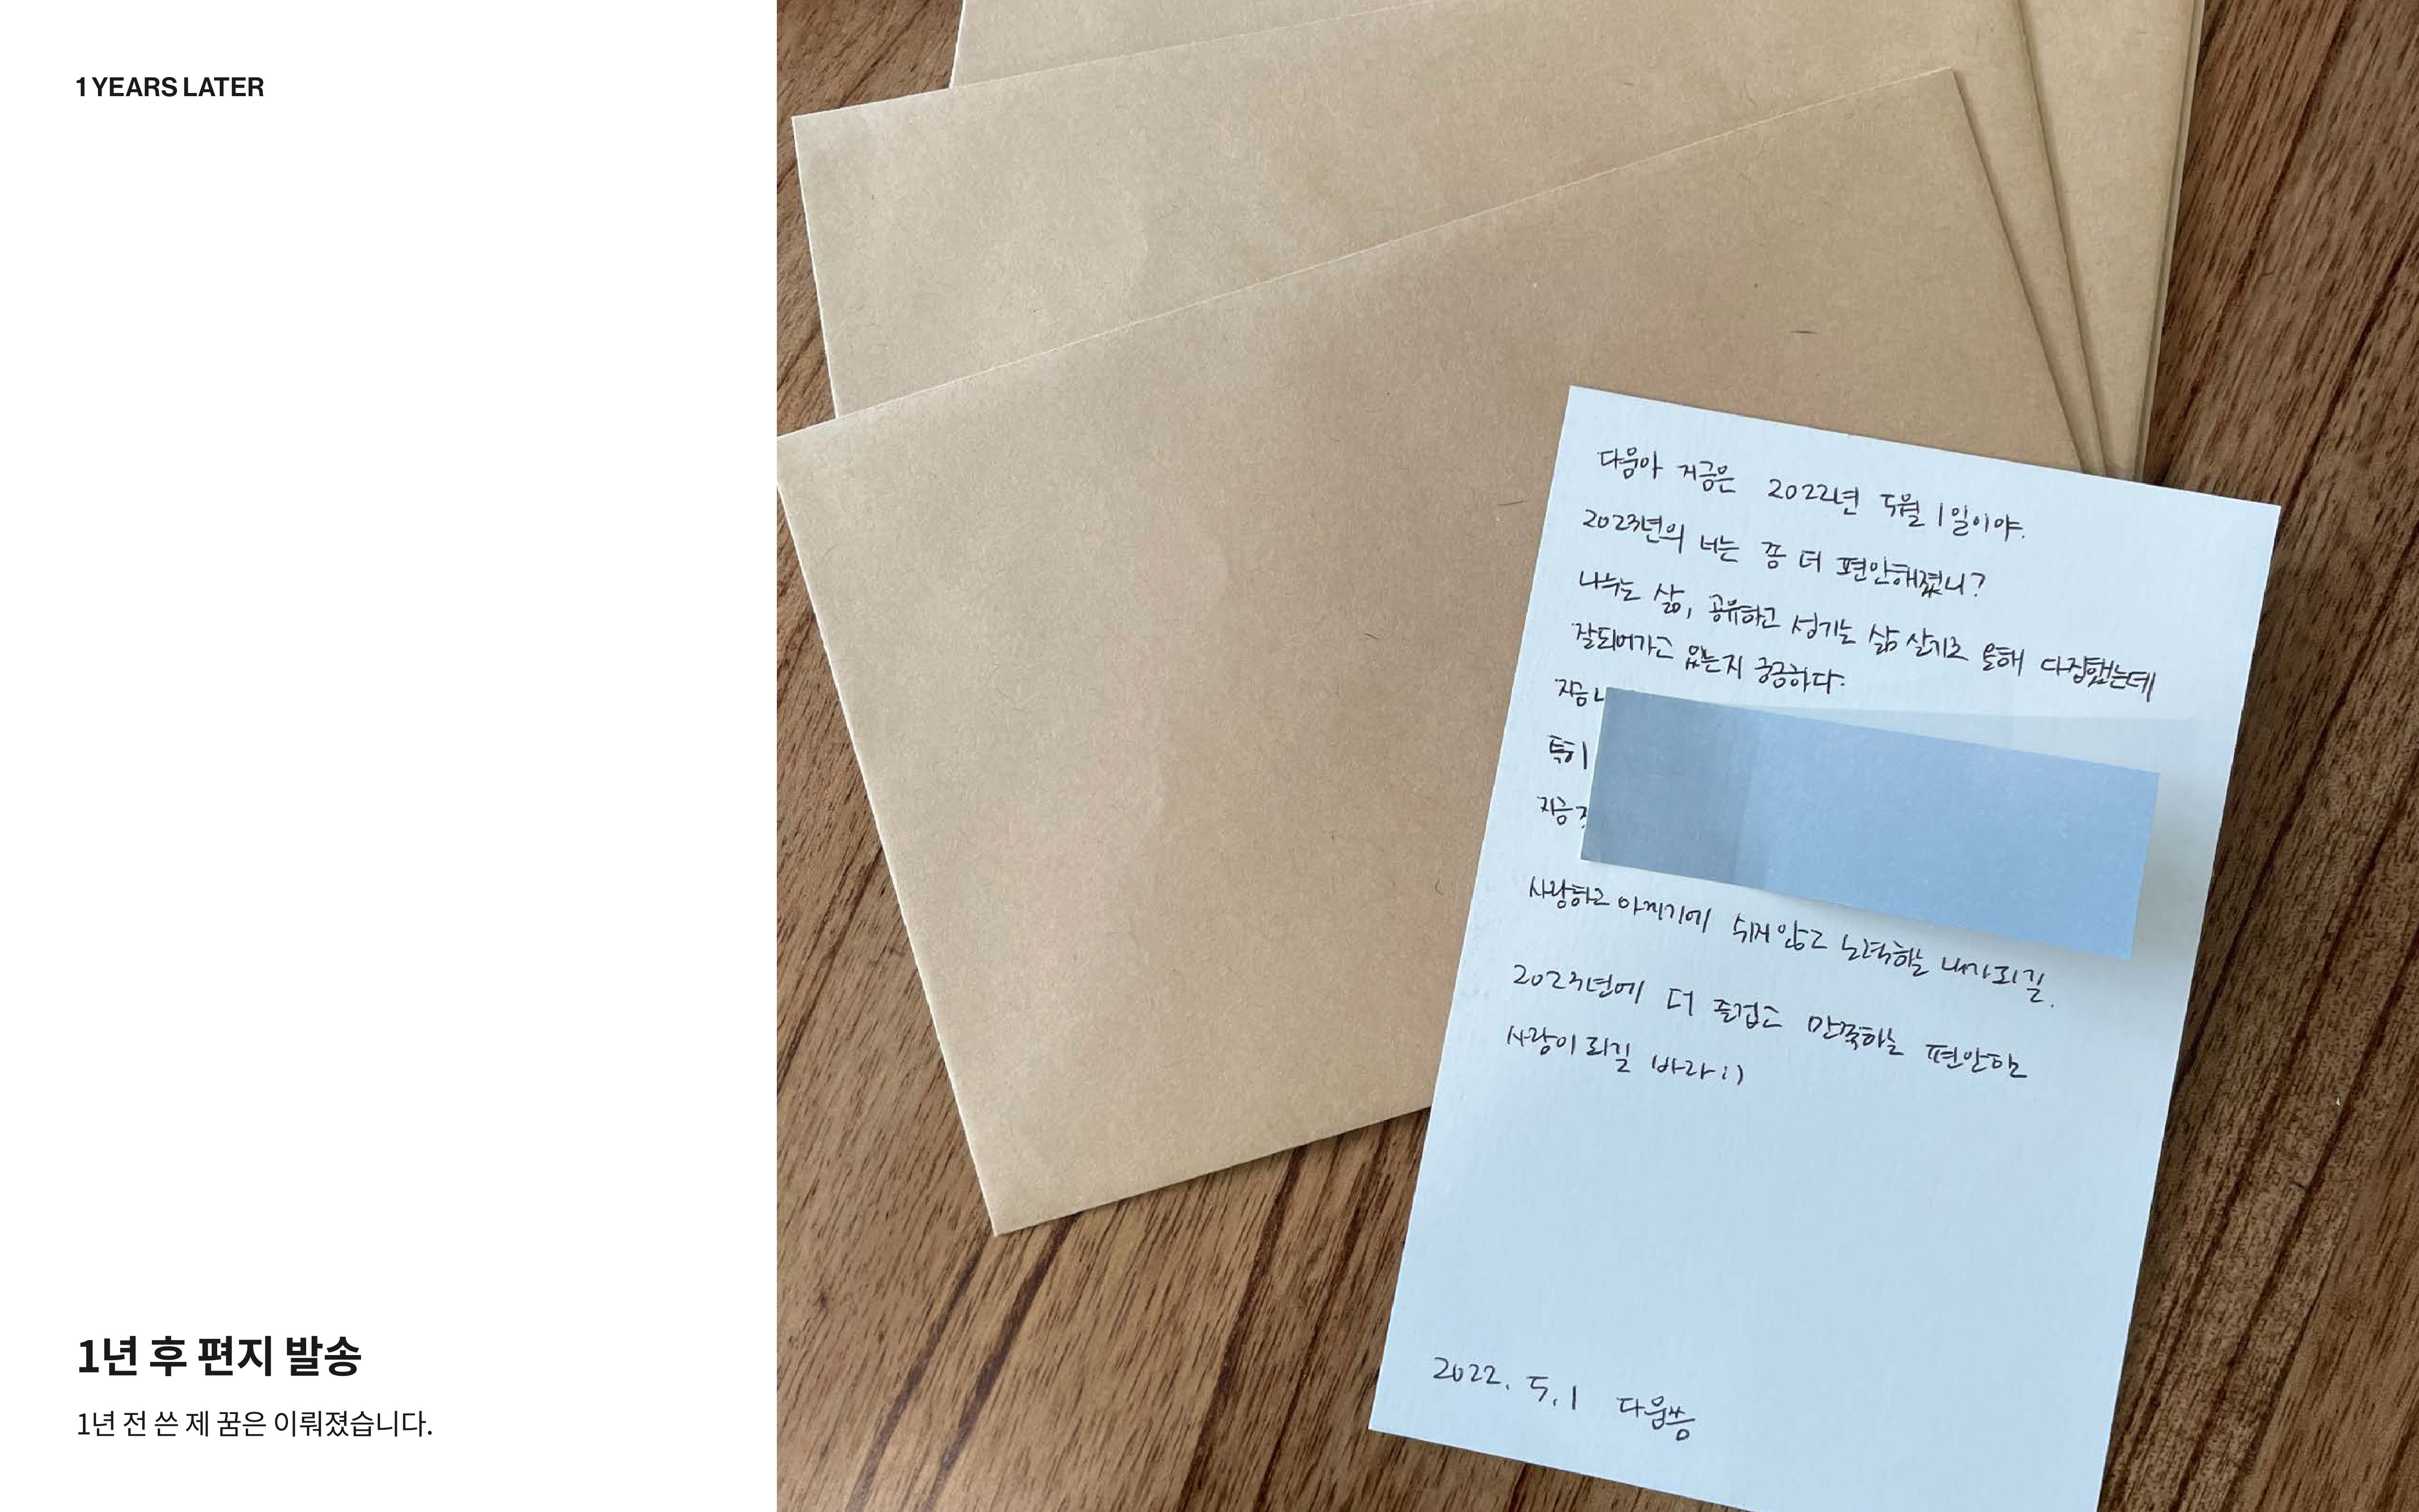 1 YEARS LATER
1년 후 편지 발송
1년 전 쓴 제 꿈은 이뤄졌습니다.
다움아 지금은 2022년 5월 1일이야.
2023년의 너는 쫌 더 편안해졌니?
나누는 삶, 공유하고 섬기는 삶 살기로 올해 다짐했는데
잘되어가고 있는지 궁금하다.
지금 나
특히
지금
사랑하고 아끼기에 쉬지 않고 노력하는 내가 되길.
2023년에 더 즐겁고 만족하는 편안한
사람이 되길 바라 :)
2022. 5. 1 다움씀